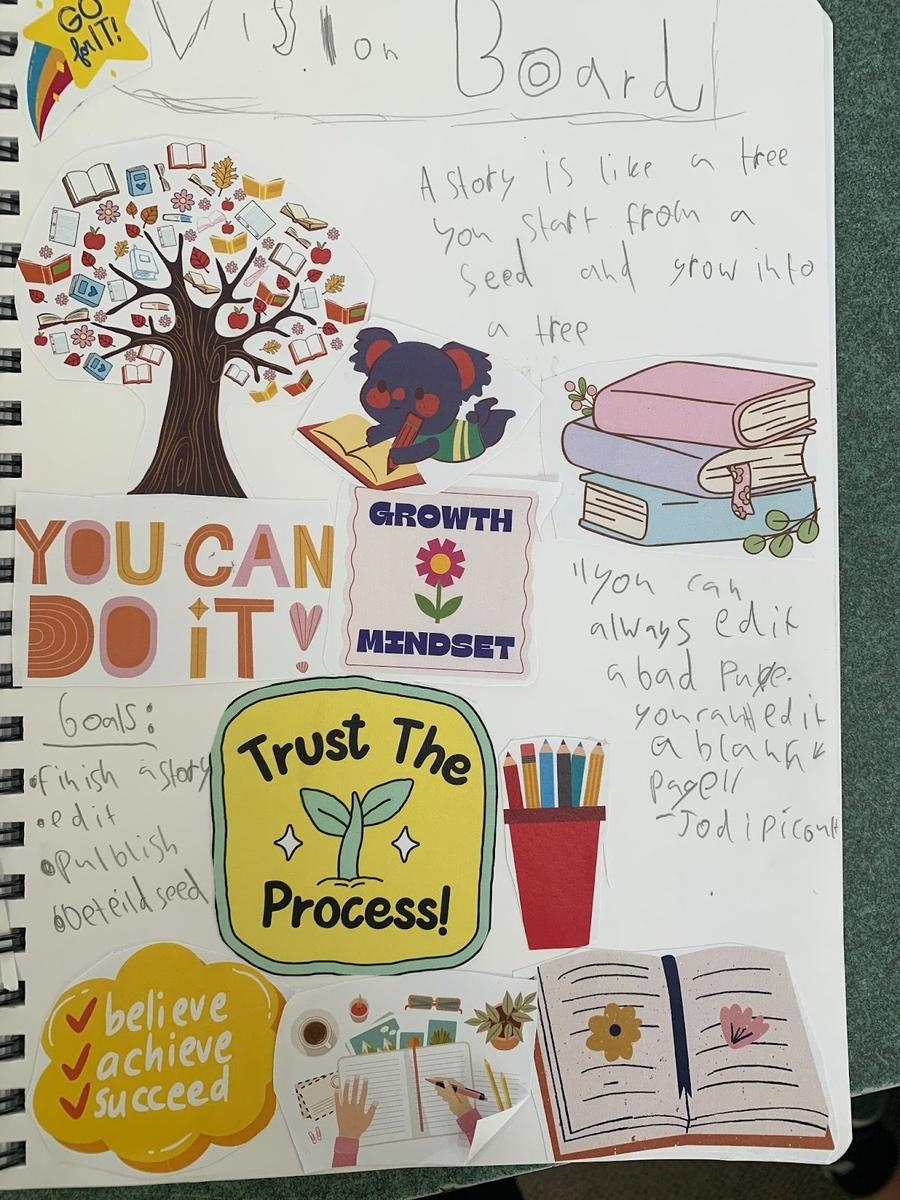 GO
for IT!
Vision Board
A story is like a tree
you start from a
seed and grow into
a tree
YOU CAN
DO iT!
GROWTH
MINDSET
"you can
always edit
a bad page.
you can't edit
a blank
page"
-Jodi picoult
Goals:
•finish a story
•edit
•Pulblish
•Deteild seed
Trust The
Process!
believe
achieve
succeed